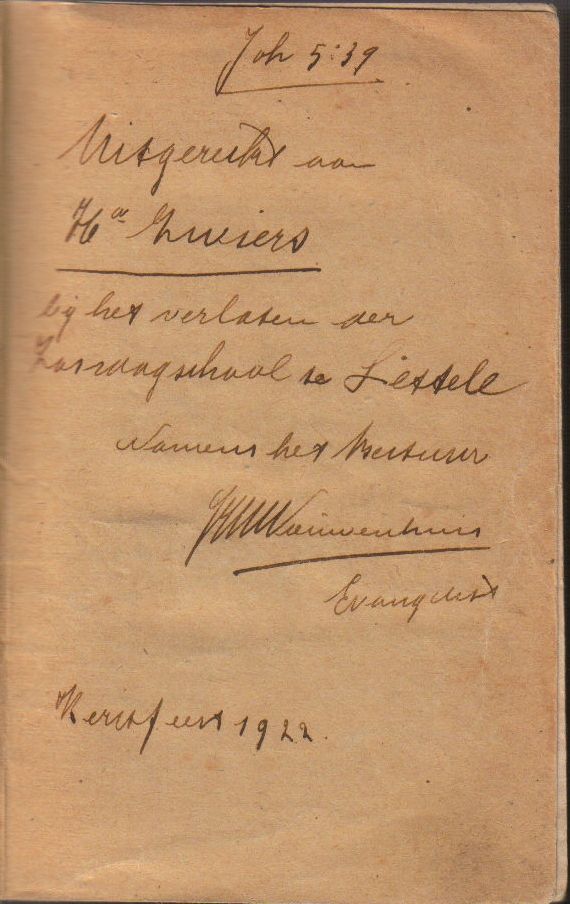 Joh 5:39
Uitgereikt aan
Ha Zwiers
bij het verlaten der
Zondagschool te Lettele
Namens het Bestuur
Nieuwenhuis
Evangelist
Kerstfeest 1922.